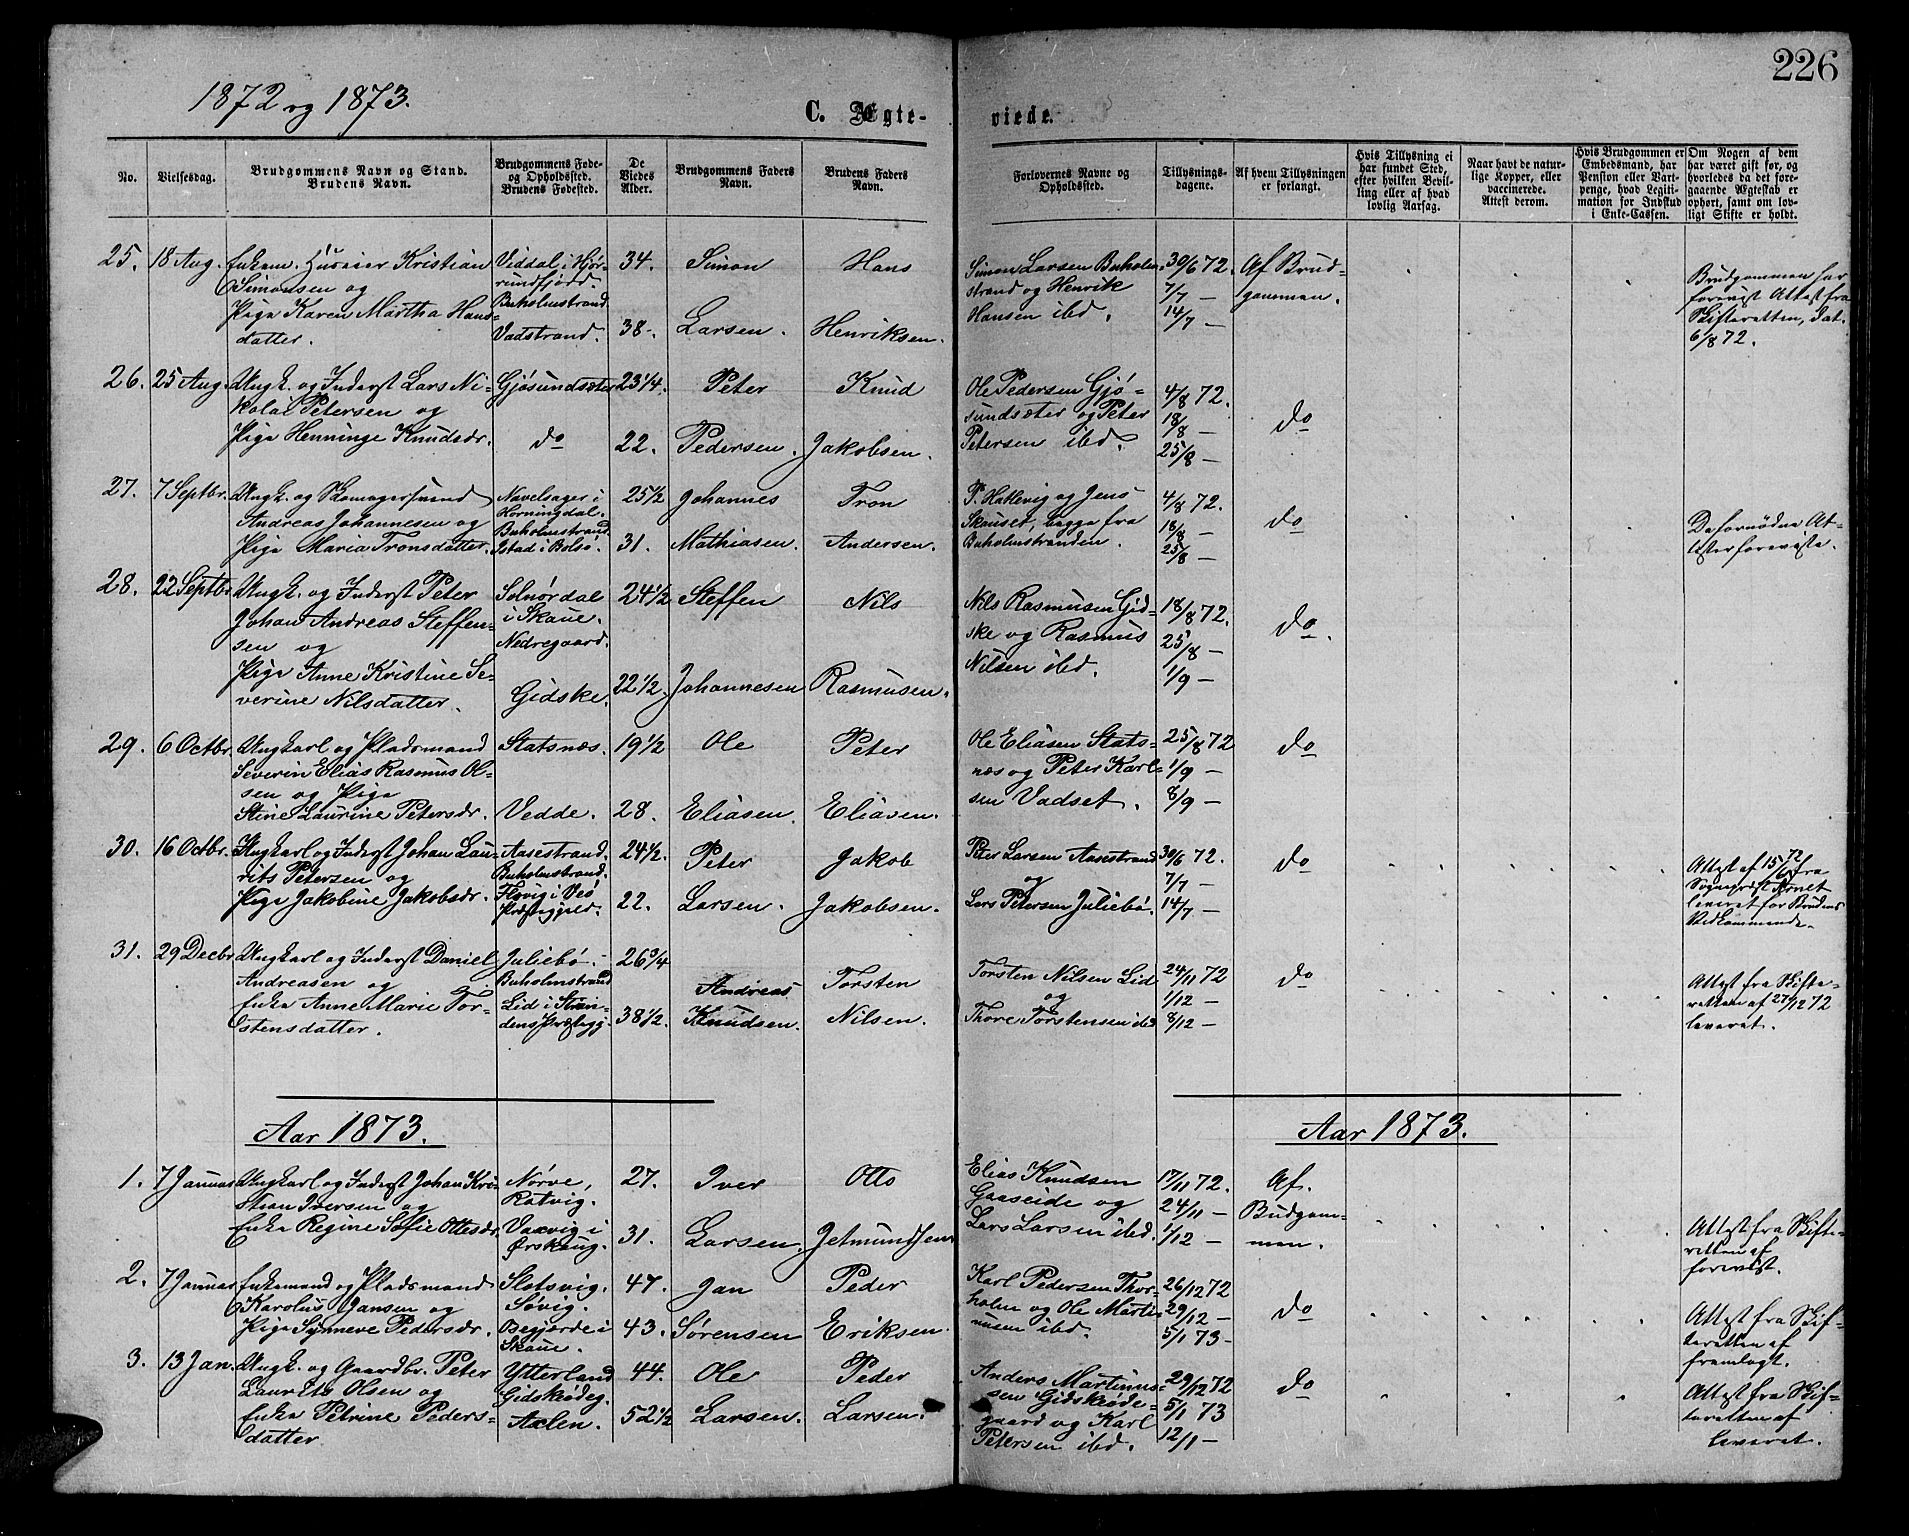 226
1872 og 1873.
C. Ægte-
viede.
No.
Vielsesdag.
Brudgommens Navn og Stand.
Brudens Navn.
Brudgommens Føde-
og Opholdsted.
Brudens Fødested.
De
Viedes
Alder.
Brudgommens Faders
Navn.
Brudens Faders
Navn.
Forlovernes Navne og
Opholdsted.
Tillysnings-
dagene.
Af hvem Tillysningen
er forlangt.
Hvis Tillysning ei
har fundet Sted,
efter hvilken Bevil-
ling eller af hvad
lovlig Aarsag.
Naar havt de natur-
lige Kopper, eller
vaccinerede.
Attest derom.
Hvis Brudgommen er
Embedsmand, har
Pension eller Vart-
penge, hvad Legiti-
mation for Indskud
i Enke-Cassen.
Om Nogen af dem
har været gift før, og
hvorledes da det fore-
gaaende Ægteskab er
ophørt, samt om lov-
ligt Skifte er holdt.
25. 18 Aug. Enkem. Huseier Kristian
Simonsen og
Pige Karen Martha Hans-
datter.
Viddal i Hjør-
rundfjord.
Buholmstrand.
Vadstrand.
34.
38.
Simon
Larsen.
Hans
Henriksen.
Simon Larsen Buholm-
strand og Henrik
Hansen ibd.
30/6 72.
7/7 —
14/7 —
Af Brud-
gommen.
Brudgommen har
forevist Attest fra
Skifteretten, dat.
6/8 72.
26. 25 Aug. Ungk. og Inderst Lars Ni-
kolai Petersen og
Pige Henninge Knudsdr.
Gjøsundsæter
do
23 1/4.
22.
Peter
Pedersen.
Knud
Jakobsen.
Ole Pedersen Gjø-
sundsæter og Peter
Petersen ibd.
4/8 72.
18/8 —
25/8 —
do
27. 7 Septbr. Ungk. og Skomagersvend
Andreas Johannesen og
Pige Maria Tronsdatter.
Navelsager i
Horningdal.
Buholmstrand.
Istad i Bolsø.
25 1/2
31.
Johannes
Mathiasen.
Tron
Andersen.
P. Hatlevig og Jens
Skauset, begge fra
Buholmstranden.
4/8 72.
18/8 —
25/8 —
do
De fornødne At-
tester foreviste.
28. 22 Septbr. Ungk. og Inderst Peter
Johan Andreas Steffen-
sen og
Pige Anne Kristine Se-
verine Nilsdatter.
Solnørdal
i Skaue.
Nedregaard.
Gidske.
24 1/2
22 1/2.
Steffen
Johannesen
Nils
Rasmusen.
Nils Rasmusen Gid-
ske og Rasmus
Nilsen ibd.
18/8 72.
25/8 —
1/9 —
do.
29. 6 Octbr. Ungkarl og Pladsmand
Severin Elias Rasmus Ol-
sen og Pige
Stine Laurine Petersdr.
Statsnæs.
Vedde.
19 1/2
28.
Ole
Eliasen.
Peter
Eliasen.
Ole Eliasen Stats-
næs og Peter Karl-
sen Vadset.
25/8 72
1/9 —
8/9 —
do
30. 16 Octbr. Ungkarl og Inderst Johan Lau-
rits Petersen og
Pige Jakobine Jakobsdr.
Aasestrand.
Buholmstrand.
Flovig i Veø
Præstegjeld.
24 1/2.
22.
Peter
Larsen.
Jakob
Jakobsen.
Peter Larsen Aasestrand
og
Lars Petersen Juliebø.
30/6 72.
7/7 —
14/7 —
do
Attest af 15/6 72 fra
Sognepræst Arnet
leveret for Brudens
Vedkommende.
31. 29 Decbr Ungkarl og Inderst Daniel
Andreasen og
Enke Anne Marie Tor-
stensdatter.
Juliebø.
Buholmstrand
Lid i Stran-
dens Præstegj.
26 3/4
38 1/2.
Andreas
Knudsen.
Torsten
Nilsen.
Torsten Nilsen Lid
og
Thore Torstensen ibd
24/11 72
1/12 —
8/12 —
do
Attest fra Skifte-
retten af 27/12 72
leveret.
Aar 1873.
Aar 1873.
1. 7 Januar Ungkarl og Inderst Johan Kri-
stian Iversen og
Enke Regine Sofie Ottesdr.
Nørve,
Ratvig.
Vaxvig i
Ørskaug.
27.
31.
Iver
Larsen.
Otto
Jetmundsen
Elias Knudsen
Gaaseide og
Lars Larsen ibd.
17/11 72.
24/11 —
1/12 —
Af.
Budgom-
men.
Attest fra Skifte-
retten af
forevist.
2. 7 Januar Enkemand og Pladsmand
Karolus Jansen og
Pige Synneve Pedersdr.
Slotsvig.
Søvig.
Begjerde i
Skaue.
47.
43.
Jan
Sørensen
Peder
Eriksen.
Karl Pedersen Thor-
holm og Ole Marti-
nusen ibd.
26/12 72
29/12 —
5/1 73 —
do
Attest fra Skif-
teretten af
fremlagt.
3. 13 Jan. Ungk. og Gaardbr. Peter
Laurits Olsen og
Enke Petrine Peders-
datter
Ytterland
Gidskeødeg.
Aalen.
44.
52 1/2
Ole
Larsen.
Peder
Larsen.
Anders Martinus-
sen Gidskeøde-
gaard og Karl
Petersen ibd.
29/12 72
5/1 73
12/1 —
do
Attest fra Skif-
teretten af
leveret.